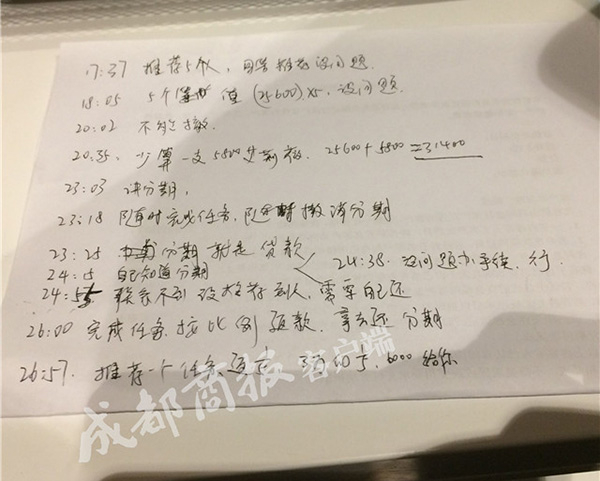 17:37 推荐5个人，推荐没问题.
18:05 5个 值 (25600)×5, 没问题.
20:02 不能撤.
20:35. 少算一支5800 25600+5800=31400
23:03 讲分期,
23:18 随时完成任务, 随时撤消分期
23:25 分期 就是 贷款
24:38. 没问题办手续. 行.
24:5 自己知道分期
24:55 联系不到 没推荐到人, 需要自己还
26:00 完成任务 按比例 返款. 拿去还 分期
26:57. 推荐一个任务 6000 给你
成都商报客户端